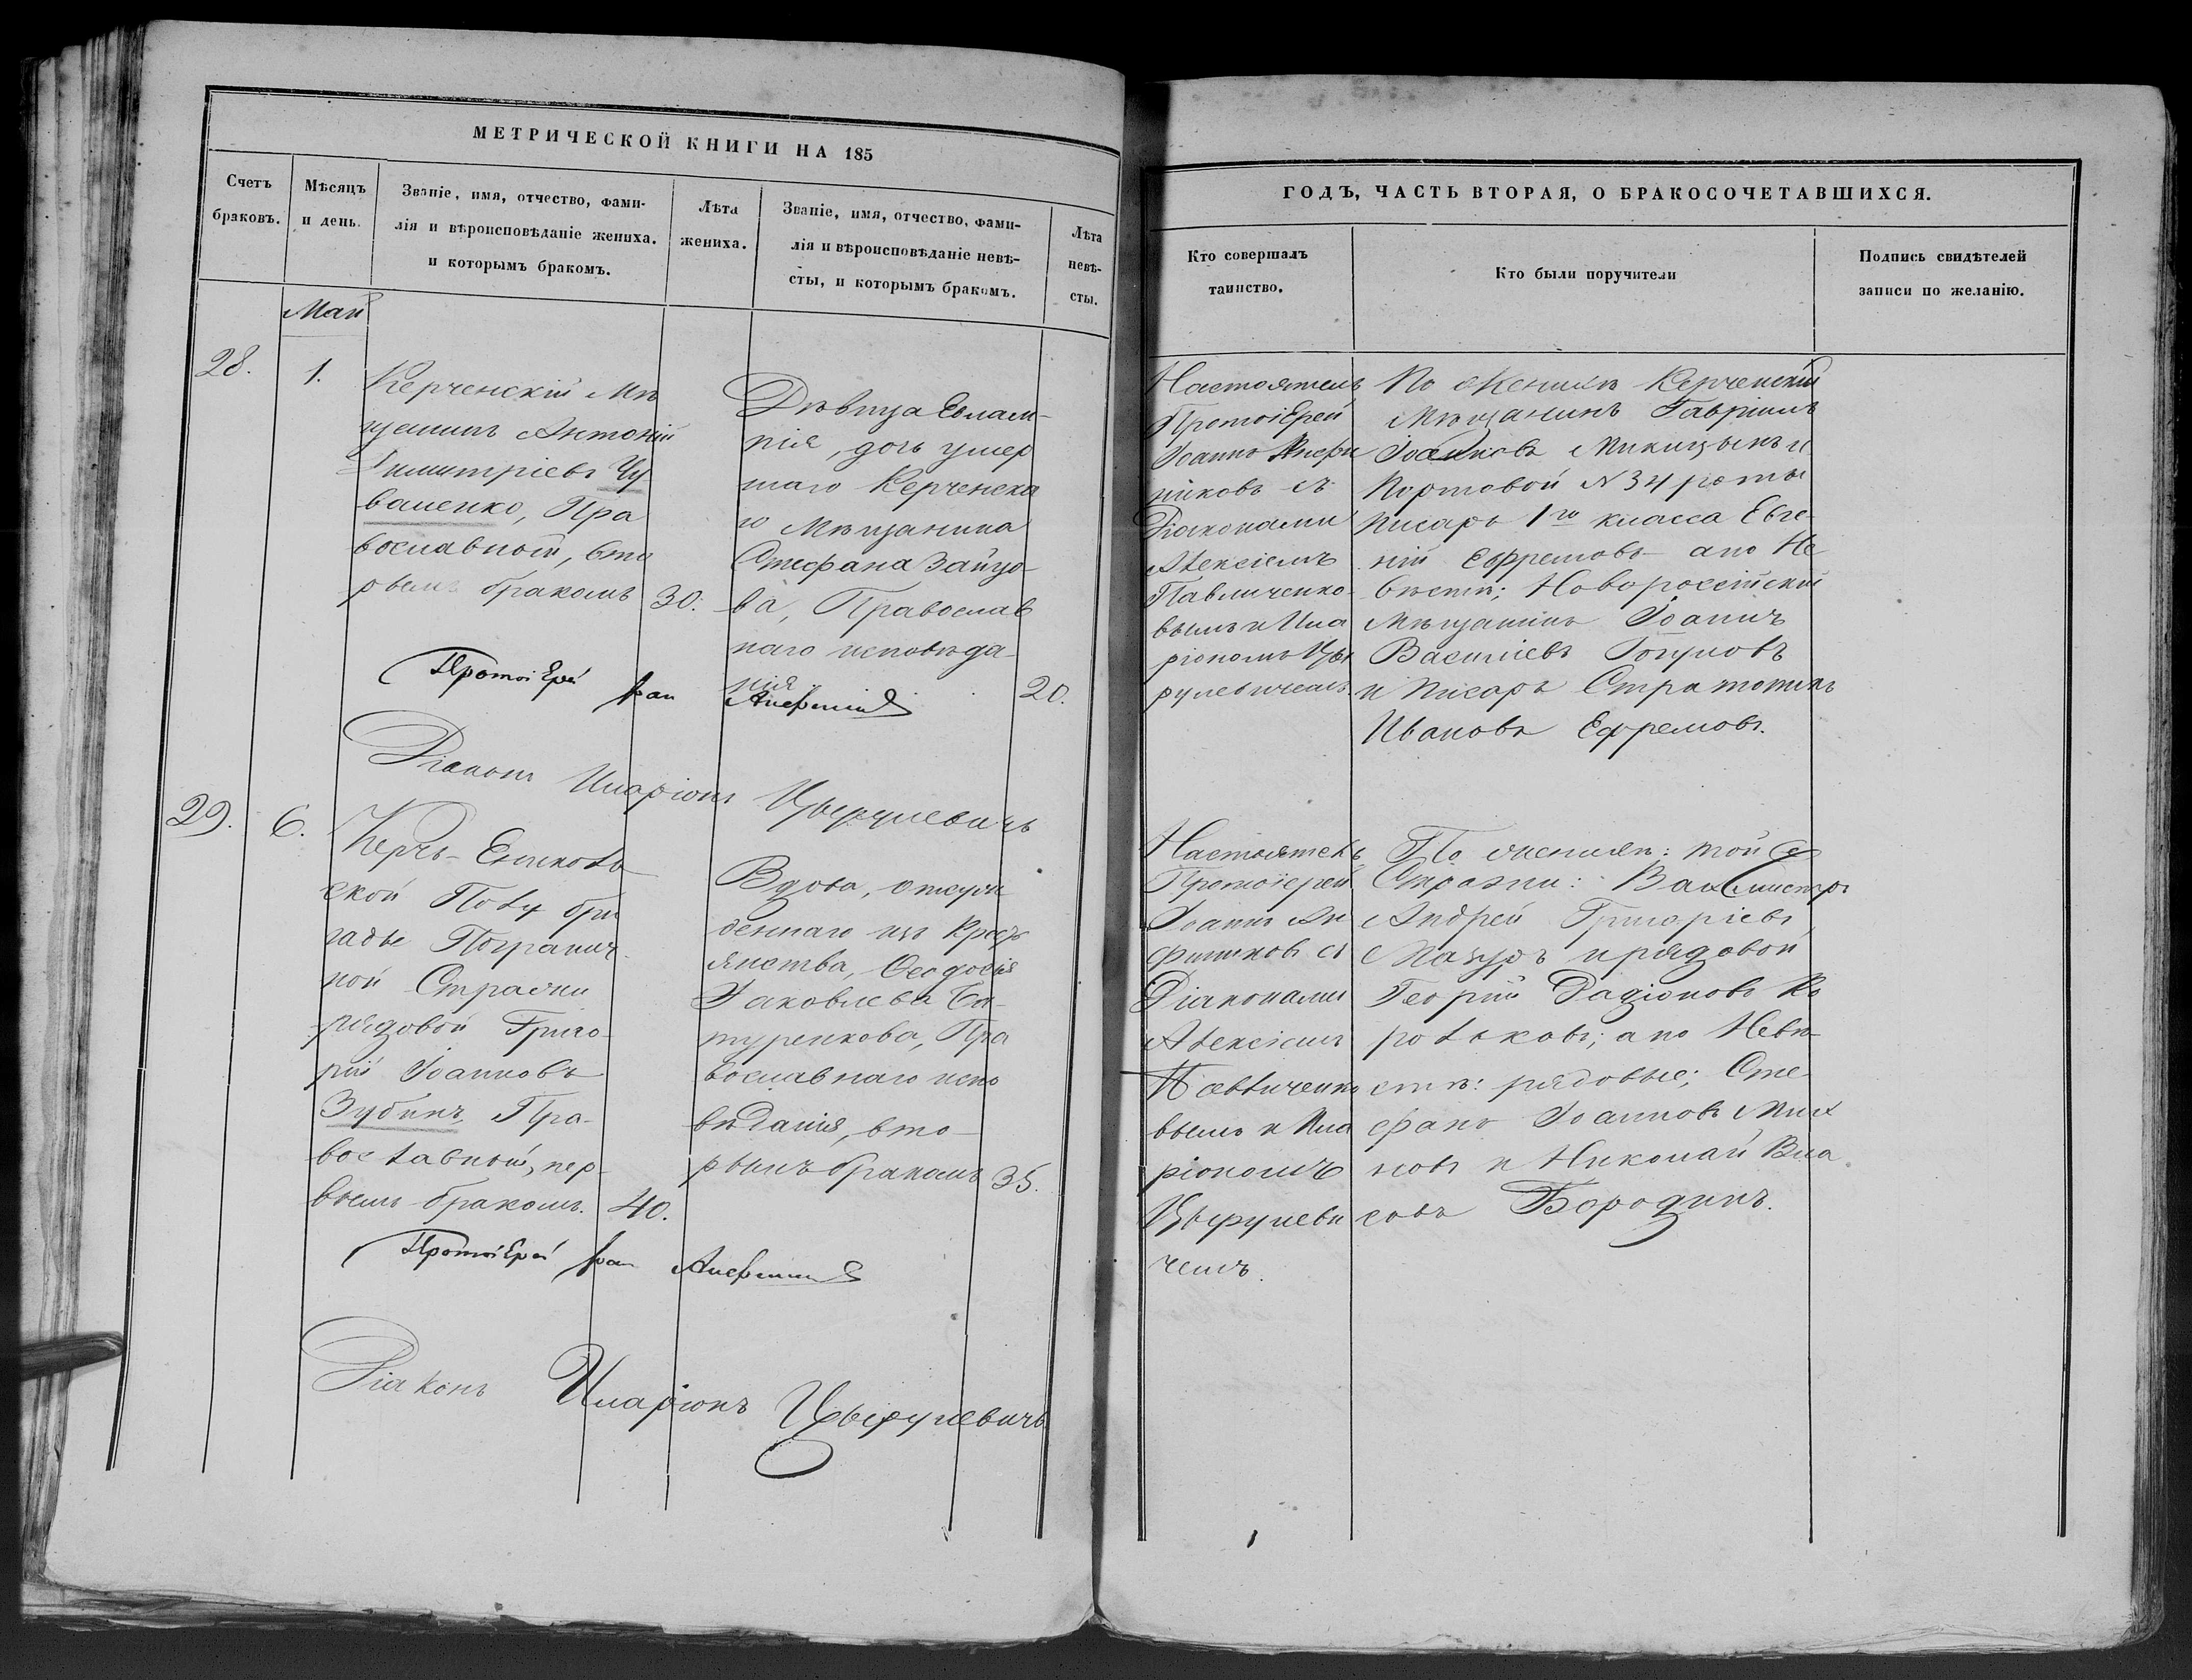 МЕТРИЧЕСКОЙ КНИГИ НА 185
Счетъ
браковъ.
Мѣсяцъ
и день.
Званіе, имя, отчество, фами-
лія и вѣроисповѣданіе жениха.
и которымъ бракомъ.
Лѣта
жениха.
Званіе, имя, отчество, фами-
лія и вѣроисповѣданіе невѣ-
сты, и которымъ бракомъ.
Лѣта
невѣ-
сты.
Май
28.
1.
Керченскій Мѣ
щанинъ Антоній
Димитріевъ Чу
ваменко, Пра
вославной, вто
рымъ бракомъ
30.
Дѣвица Евлам-
пія, дочь умер
шаго Керченска
го Мѣщанина
Стефана Зайцо-
ва, Православ
наго исповѣда-
нія
20.
ПротоіЕрей Іоан Анфиник
Діаконъ Иларіонъ Цыфулевичъ
29.
6.
Керчь-Еникольской
ской Полу бри
гады Погранич-
ной Стражи
рядовой Григо-
рій Іоанновъ
Зубинъ, Пра-
вославной, пер-
вымъ бракомъ.
40.
Вдова, отсуж
деннаго изъ Кресть
янства, Ѳеодосія
Іаковлева Ба-
туренкова, Пра
вославнаго испо
вѣданія, вто-
рымъ бракомъ
35.
ПротоіЕрей Іоан Анфиник
Діаконъ Иларіонъ Цыфулевичъ
ГОДЪ, ЧАСТЬ ВТОРАЯ, О БРАКОСОЧЕТАВШИХСЯ.
Кто совершалъ
таинство.
Кто были поручители
Подпись свидѣтелей
записи по желанію.
Настоятель
ПротоіЕрей
Іоаннъ Анфи
никовъ съ
Діаконами
Алексіемъ
Павличенко-
вымъ и Ила
ріономъ Цы
фулевичемъ.
По Женихѣ Керченскій
Мѣщанинъ Гавріилъ
Іоанновъ Микицынъ и
Портовой N 34 роты
писарь 1го класса Евге-
ній Ефремовъ а по Не
вѣстѣ; Новоросейскій
Мѣщанинъ Іоаннъ
Василіевъ
и писарь Стратоникъ
Ивановъ Ефремовъ.
Настоятель
Протоіерей
Іоаннъ Ан
финиковъ съ
Діаконами
Алексіемъ
Павличенко
вымъ и Ила
ріономъ
Цыфулеви
чемъ.
По женихѣ: той же
Стражи: Вахмистръ
Андрей Григоріевъ
Мазуръ и рядовой
Георгій Радіоновъ Ко
ротковъ; а по Невѣ-
стѣ: рядовые; Сте-
фанъ Іоанновъ Мих
новъ и Николай Вла
совъ Бородинъ.